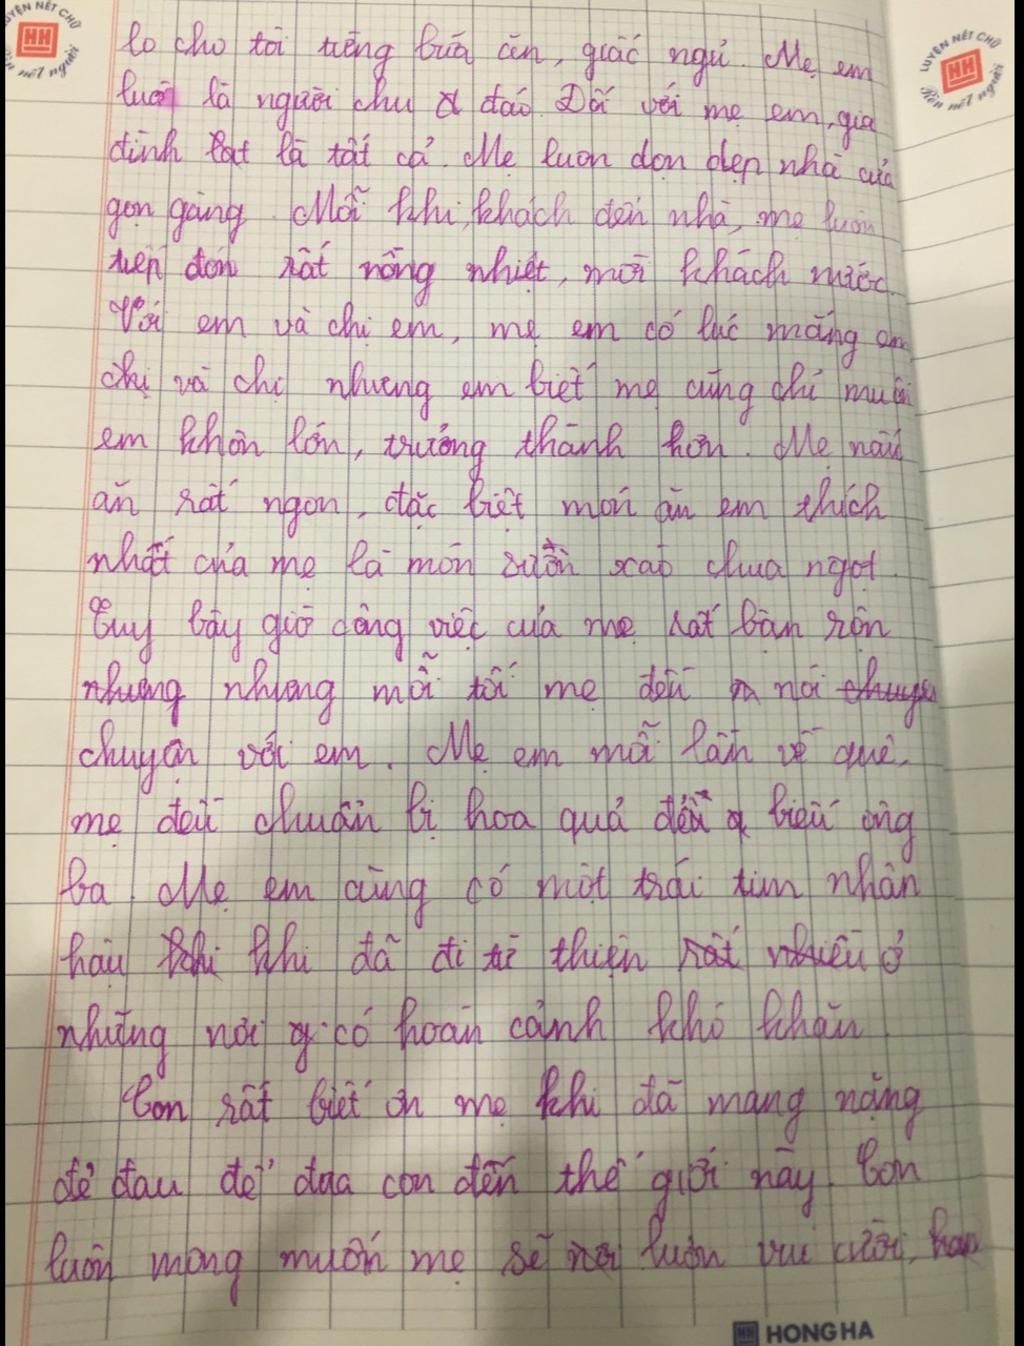 LUYỆN NÉT CHỮ
HH
Rèn nết người
LUYỆN NÉT CHỮ
HH
Rèn nết người
lo cho tôi từng bữa ăn, giấc ngủ. Mẹ em
luôn là người chu đáo. Đối với mẹ em, gia
đình là tất cả. Mẹ luôn dọn dẹp nhà cửa
gọn gàng. Mỗi khi khách đến nhà, mẹ luôn
tiếp đón rất nồng nhiệt, mời khách nước.
Với em và chị em, mẹ em có lúc mắng em
chị và chị nhưng em biết mẹ cũng chỉ muốn
em khôn lớn, trưởng thành hơn. Mẹ nấu
ăn rất ngon, đặc biệt món ăn em thích
nhất của mẹ là món sườn xào chua ngọt.
Tuy bây giờ công việc của mẹ rất bận rộn
nhưng nhưng mỗi tối mẹ đều nói chuyện
chuyện với em. Mẹ em mỗi lần về quê,
mẹ đều chuẩn bị hoa quả đến biếu ông
bà. Mẹ em cũng có một trái tim nhân
hậu khi khi đã đi từ thiện rất nhiều ở
những nơi có hoàn cảnh khó khăn.
Con rất biết ơn mẹ khi đã mang nặng
đẻ đau để đưa con đến thế giới này. Con
luôn mong muốn mẹ sẽ luôn vui cười,
HH HONG HA